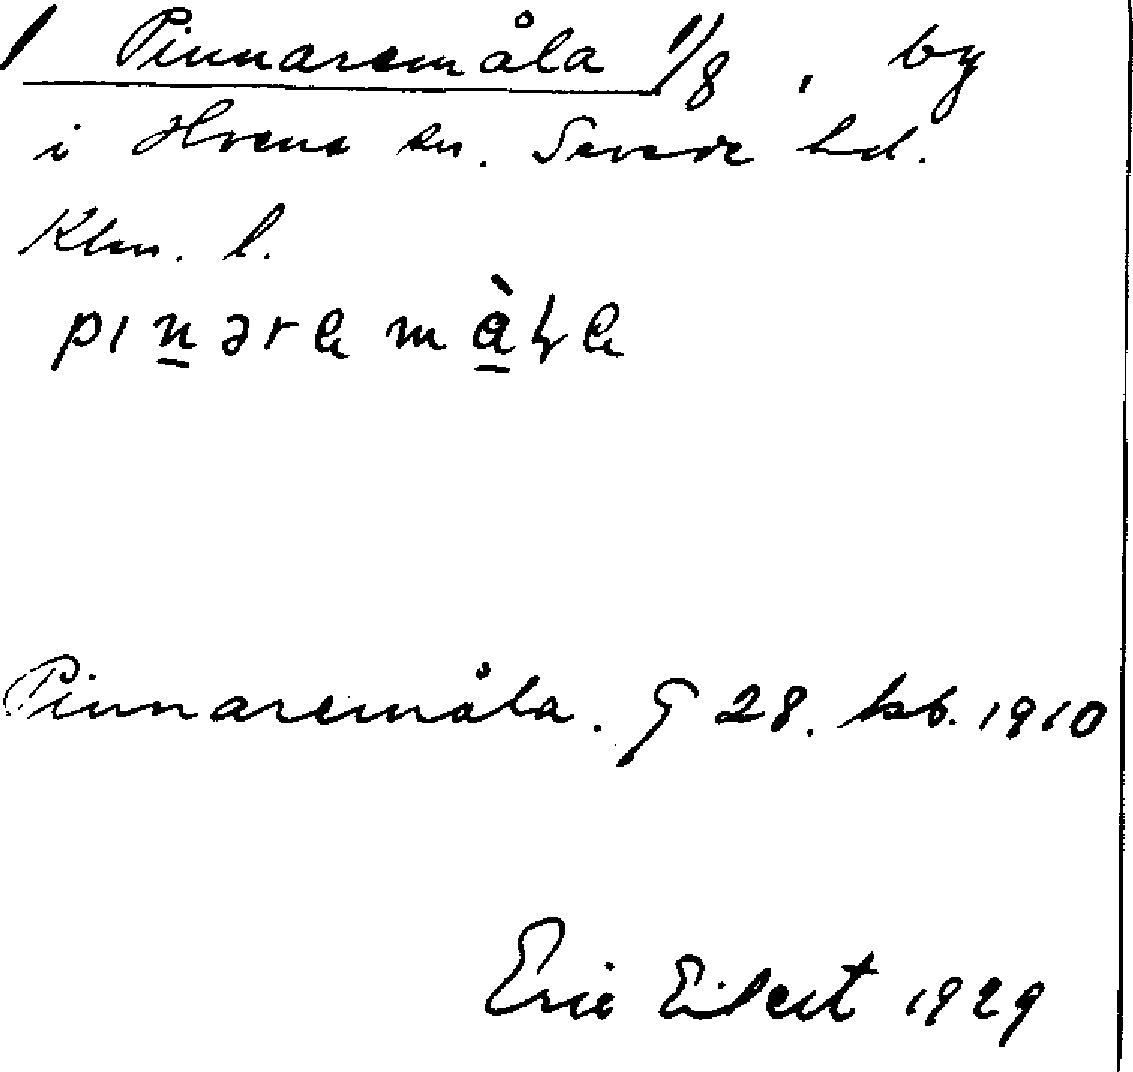 Pinnaremåla 1/8, by
i Hvena sn. Sevede hd.
Klm. l.
pınəra màla
Pinnaremåla. G 28. ksb. 1910
Eric Eilert 1929